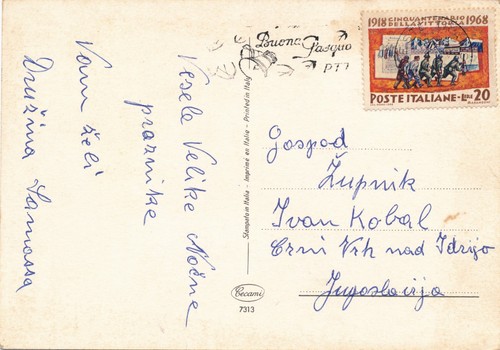 Vesele Velike Nočne
praznike
Vam želi
Družina Samassa
Buona Pasqua
PTT
1918 CINQUANTENARIO 1968
DELLA VITTORIA
POSTE ITALIANE LIRE 20
Stampato in Italia - Imprimé en Italie - Printed in Italy
Cecami
7313
Gospod
Župnik
Ivan Kobal
Črni Vrh nad Idrijo
Jugoslavija